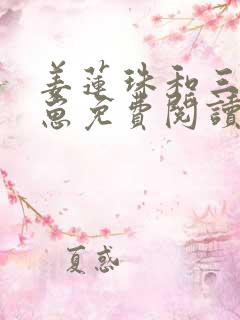 姜蓮珠和三
崽免費閱讀
夏惑